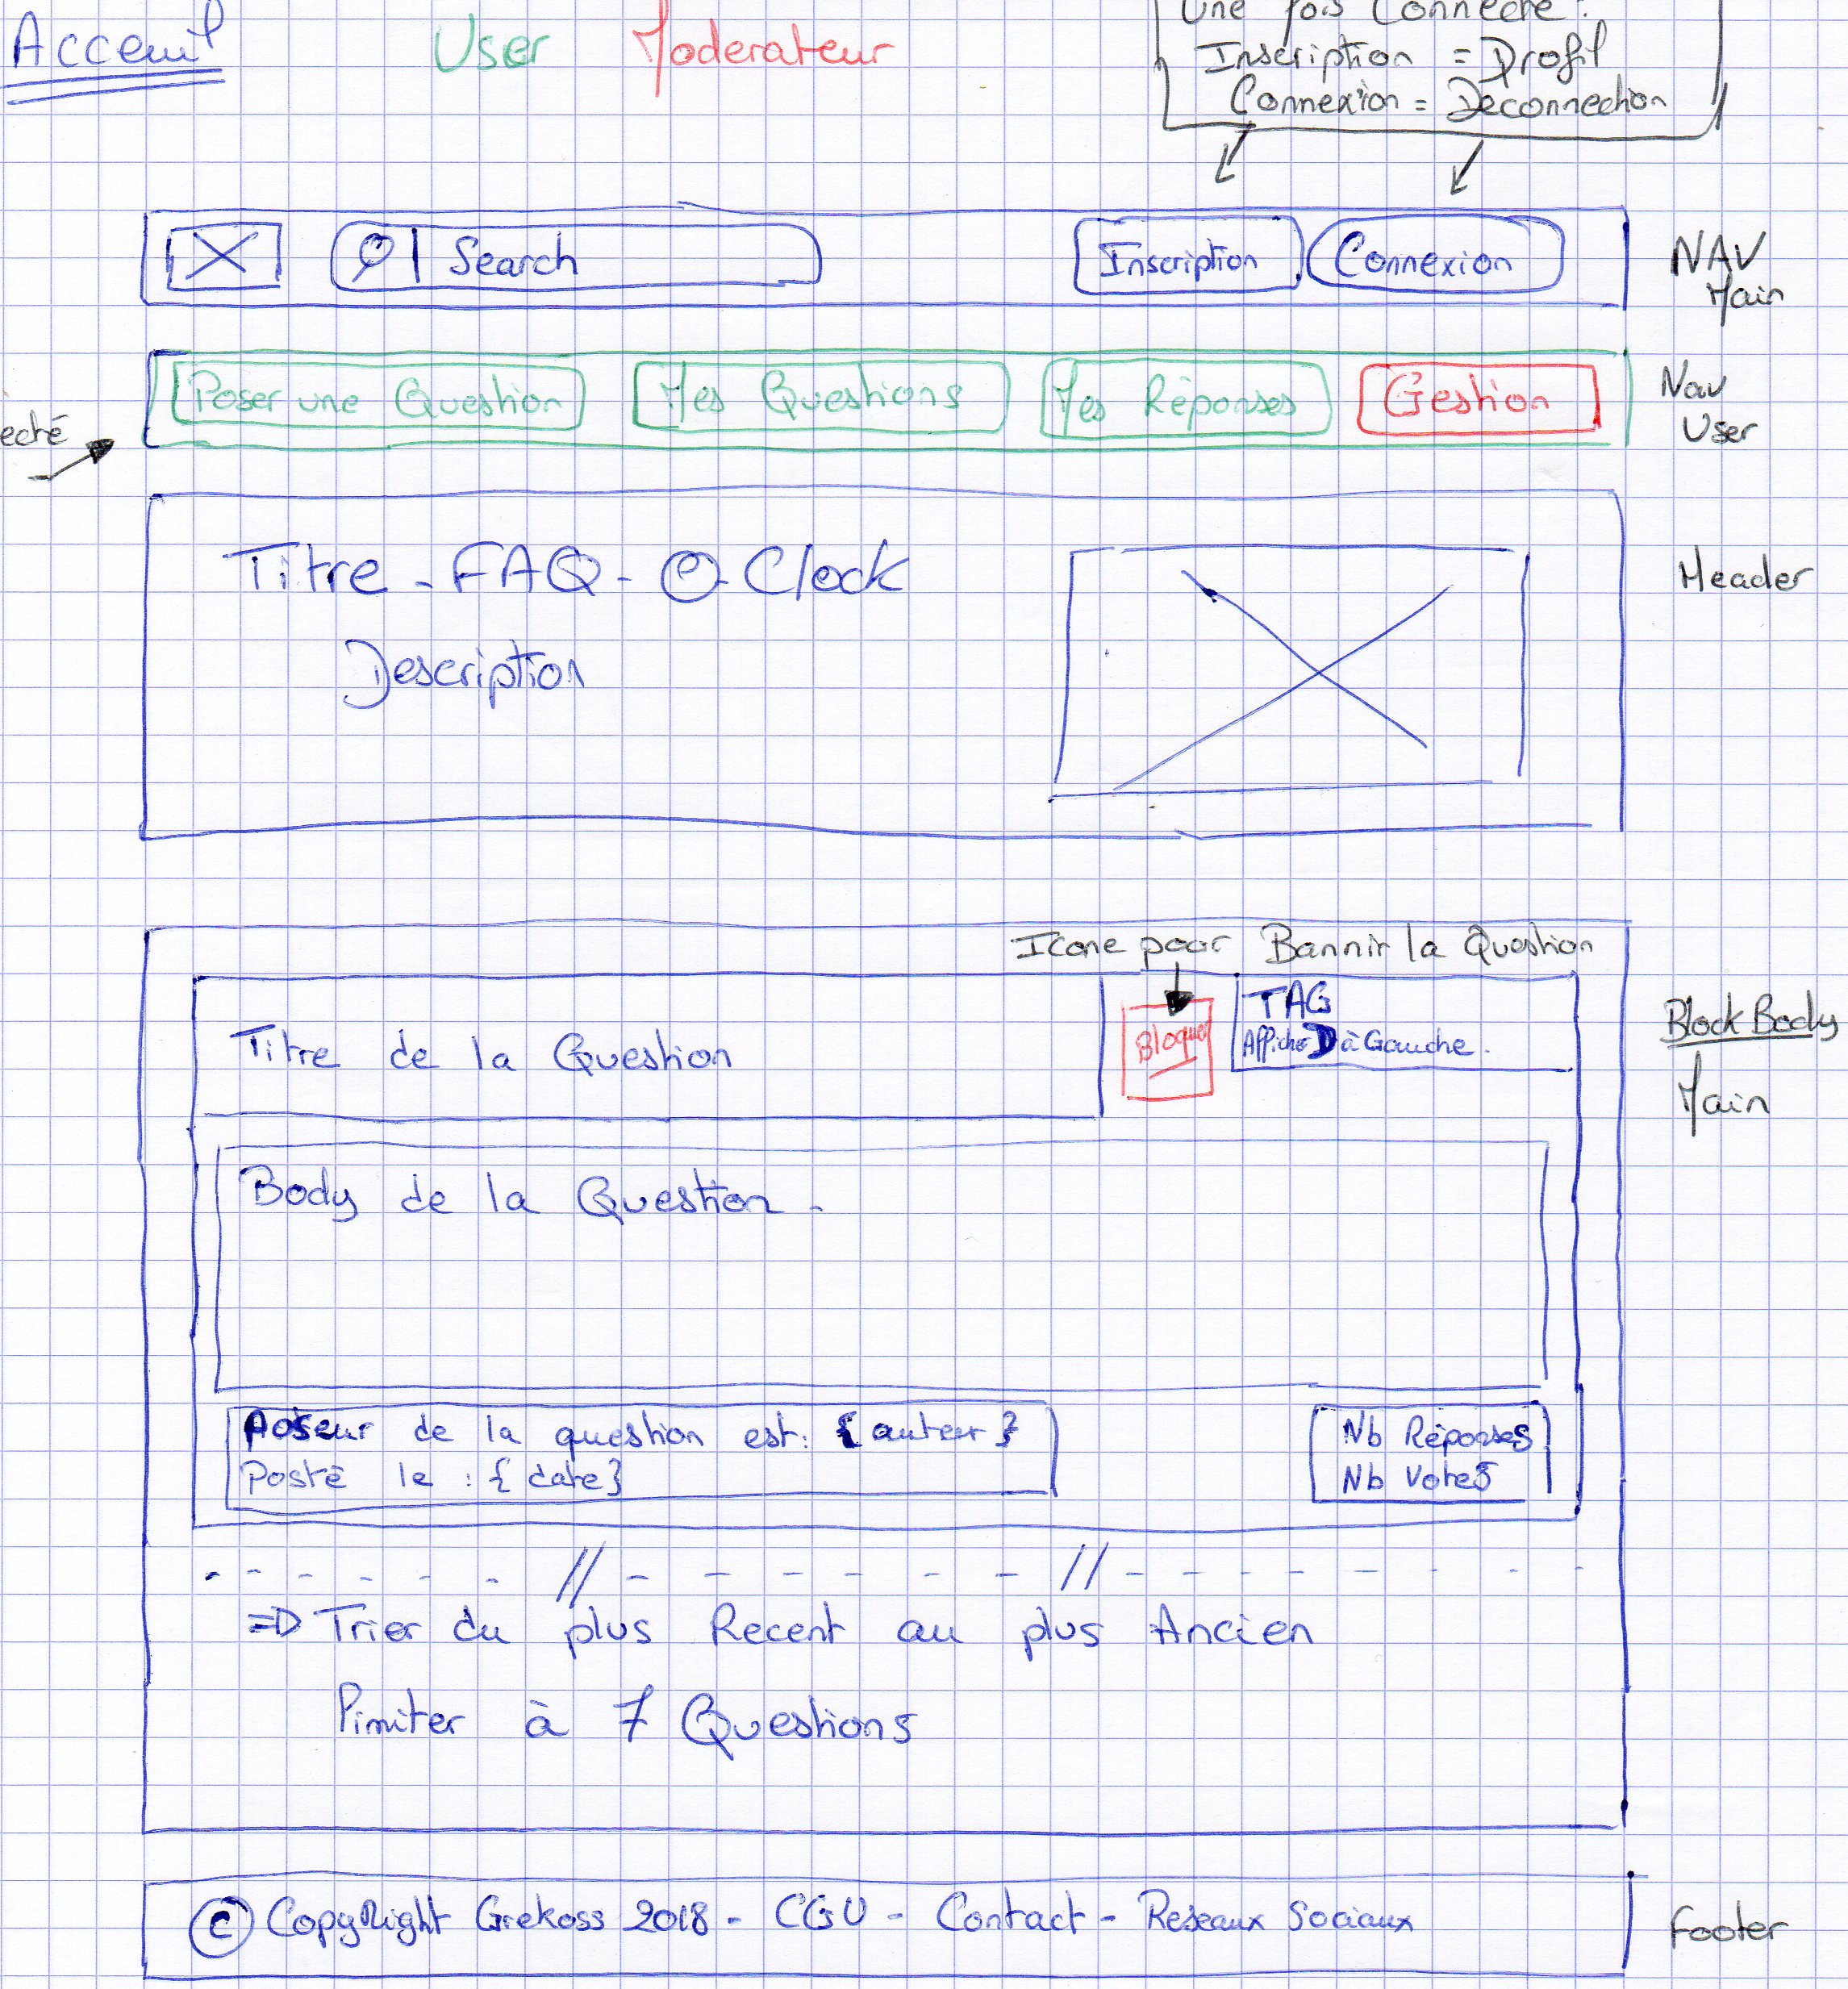 Acceuil User Moderateur
Une fois Connecté :
Inscription = Profil
Connexion = Deconnection
Search Inscription Connexion
NAV
Main
Poser une Question Mes Questions Mes Réponses Gestion
Nav
User
ecté
Titre - FAQ - O - Clock
Description
Header
Icone pour Bannir la Question
Titre de la Question
Bloquer
TAG
Afficher à Gauche.
Block Body
Main
Body de la Question.
Poseur de la question est : {auteur}
Posté le : {date}
Nb Réponses
Nb Votes
=> Trier du plus Recent au plus Ancien
limiter à 7 Questions
© CopyRight Grekoss 2018 - CGU - Contact - Reseaux Sociaux
Footer